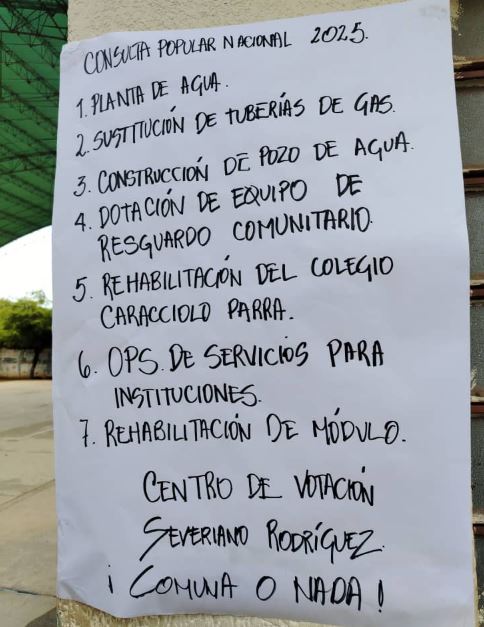 CONSULTA POPULAR NACIONAL 2025.
1. PLANTA DE AGUA.
2. SUSTITUCIÓN DE TUBERÍAS DE GAS.
3. CONSTRUCCIÓN DE POZO DE AGUA.
4. DOTACIÓN DE EQUIPO DE
RESGUARDO COMUNITARIO.
5. REHABILITACIÓN DEL COLEGIO
CARACCIOLO PARRA.
6. OPS. DE SERVICIOS PARA
INSTITUCIONES.
7. REHABILITACIÓN DE MÓDULO.
CENTRO DE VOTACIÓN
SEVERIANO RODRÍGUEZ.
¡ COMUNA O NADA !